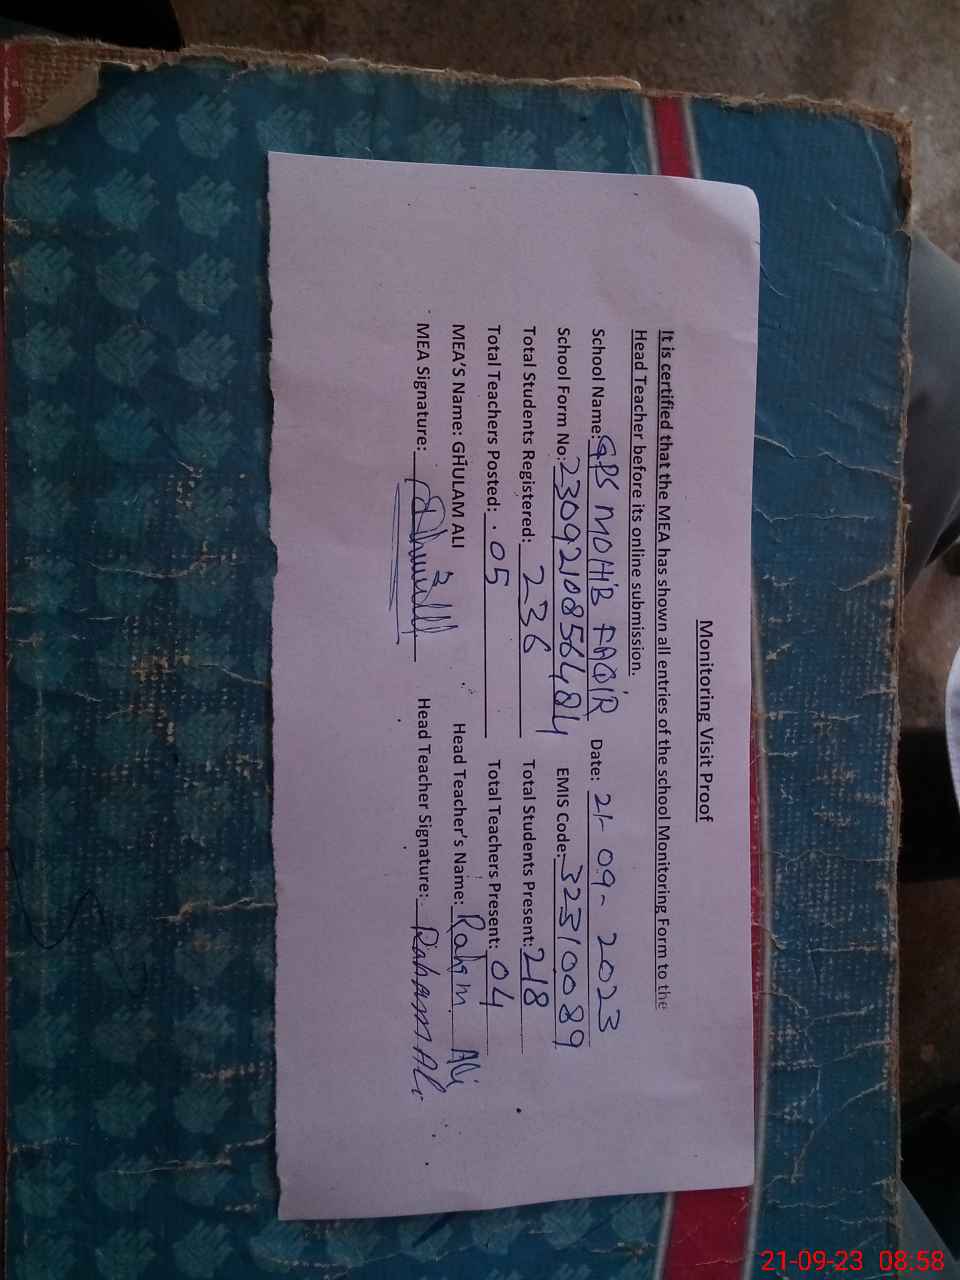 Monitoring Visit Proof
It is certified that the MEA has shown all entries of the school Monitoring Form to the
Head Teacher before its online submission.
School Name: GPS MOHIB FAQIR Date: 21-09-2023
School Form No: 2309210856484 EMIS Code: 32310089
Total Students Registered: 236 Total Students Present: 218
Total Teachers Posted: 05 Total Teachers Present: 04
MEA'S Name: GHULAM ALI Head Teacher's Name: Rahim Ali
MEA Signature: Head Teacher Signature: Raham Ali
21-09-23 08:58